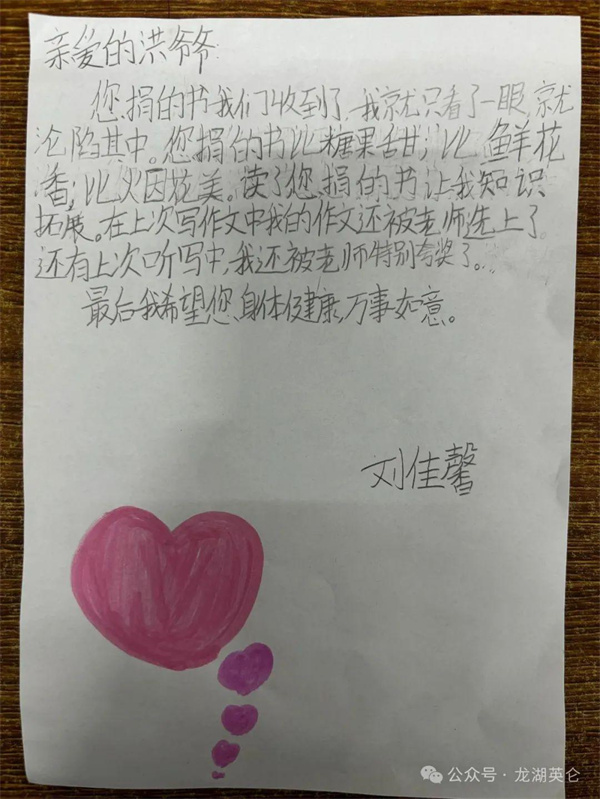 亲爱的洪爷爷
您捐的书我们收到了,我就只看了一眼,就
沦陷其中。您捐的书比糖果甜;比鲜花
香;比火因花美。读了您捐的书让我知识
拓展。在上次写作文中我的作文还被老师选上了
还有上次听写中,我还被老师特别夸奖了。
最后我希望您身体健康,万事如意。
刘佳馨
公众号·龙湖英仑